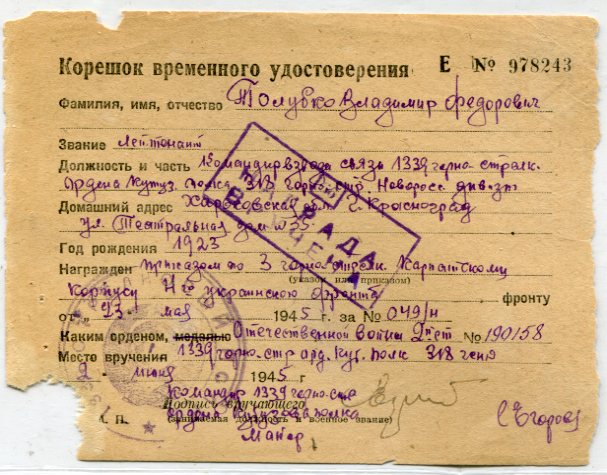 Корешок временного удостоверения Е № 978243
Фамилия, имя, отчество Толубко Владимир Федорович
Звание лейтенант
Должность и часть Командир взвода связь 1339 горно-стрелк.
Ордена Кутуз. полк 318 горно стр. Новоросс дивизи
Домашний адрес Харьковская обл г. Красноград
ул. Театральная дом № 35
Год рождения 1923
НАГРАДА
ВРУЧЕНА
Награжден приказом по 3 горно стрелк. Карпатскому
(указом или приказом)
корпусу 4го украинского фронта фронту
от "23" мая 1945 г. за № 049/н
Каким орденом, медалью Отечественной войны 2 ст № 190158
Место вручения 1339 горно-стр орд. Кут. полк 318
2 июня 1945 г
Командир 1339 горно-стр
Подпись вручающего
ордена Кутузова полка
(занимаемая должность и военное звание)
М. П.
Майор
(Егоров)